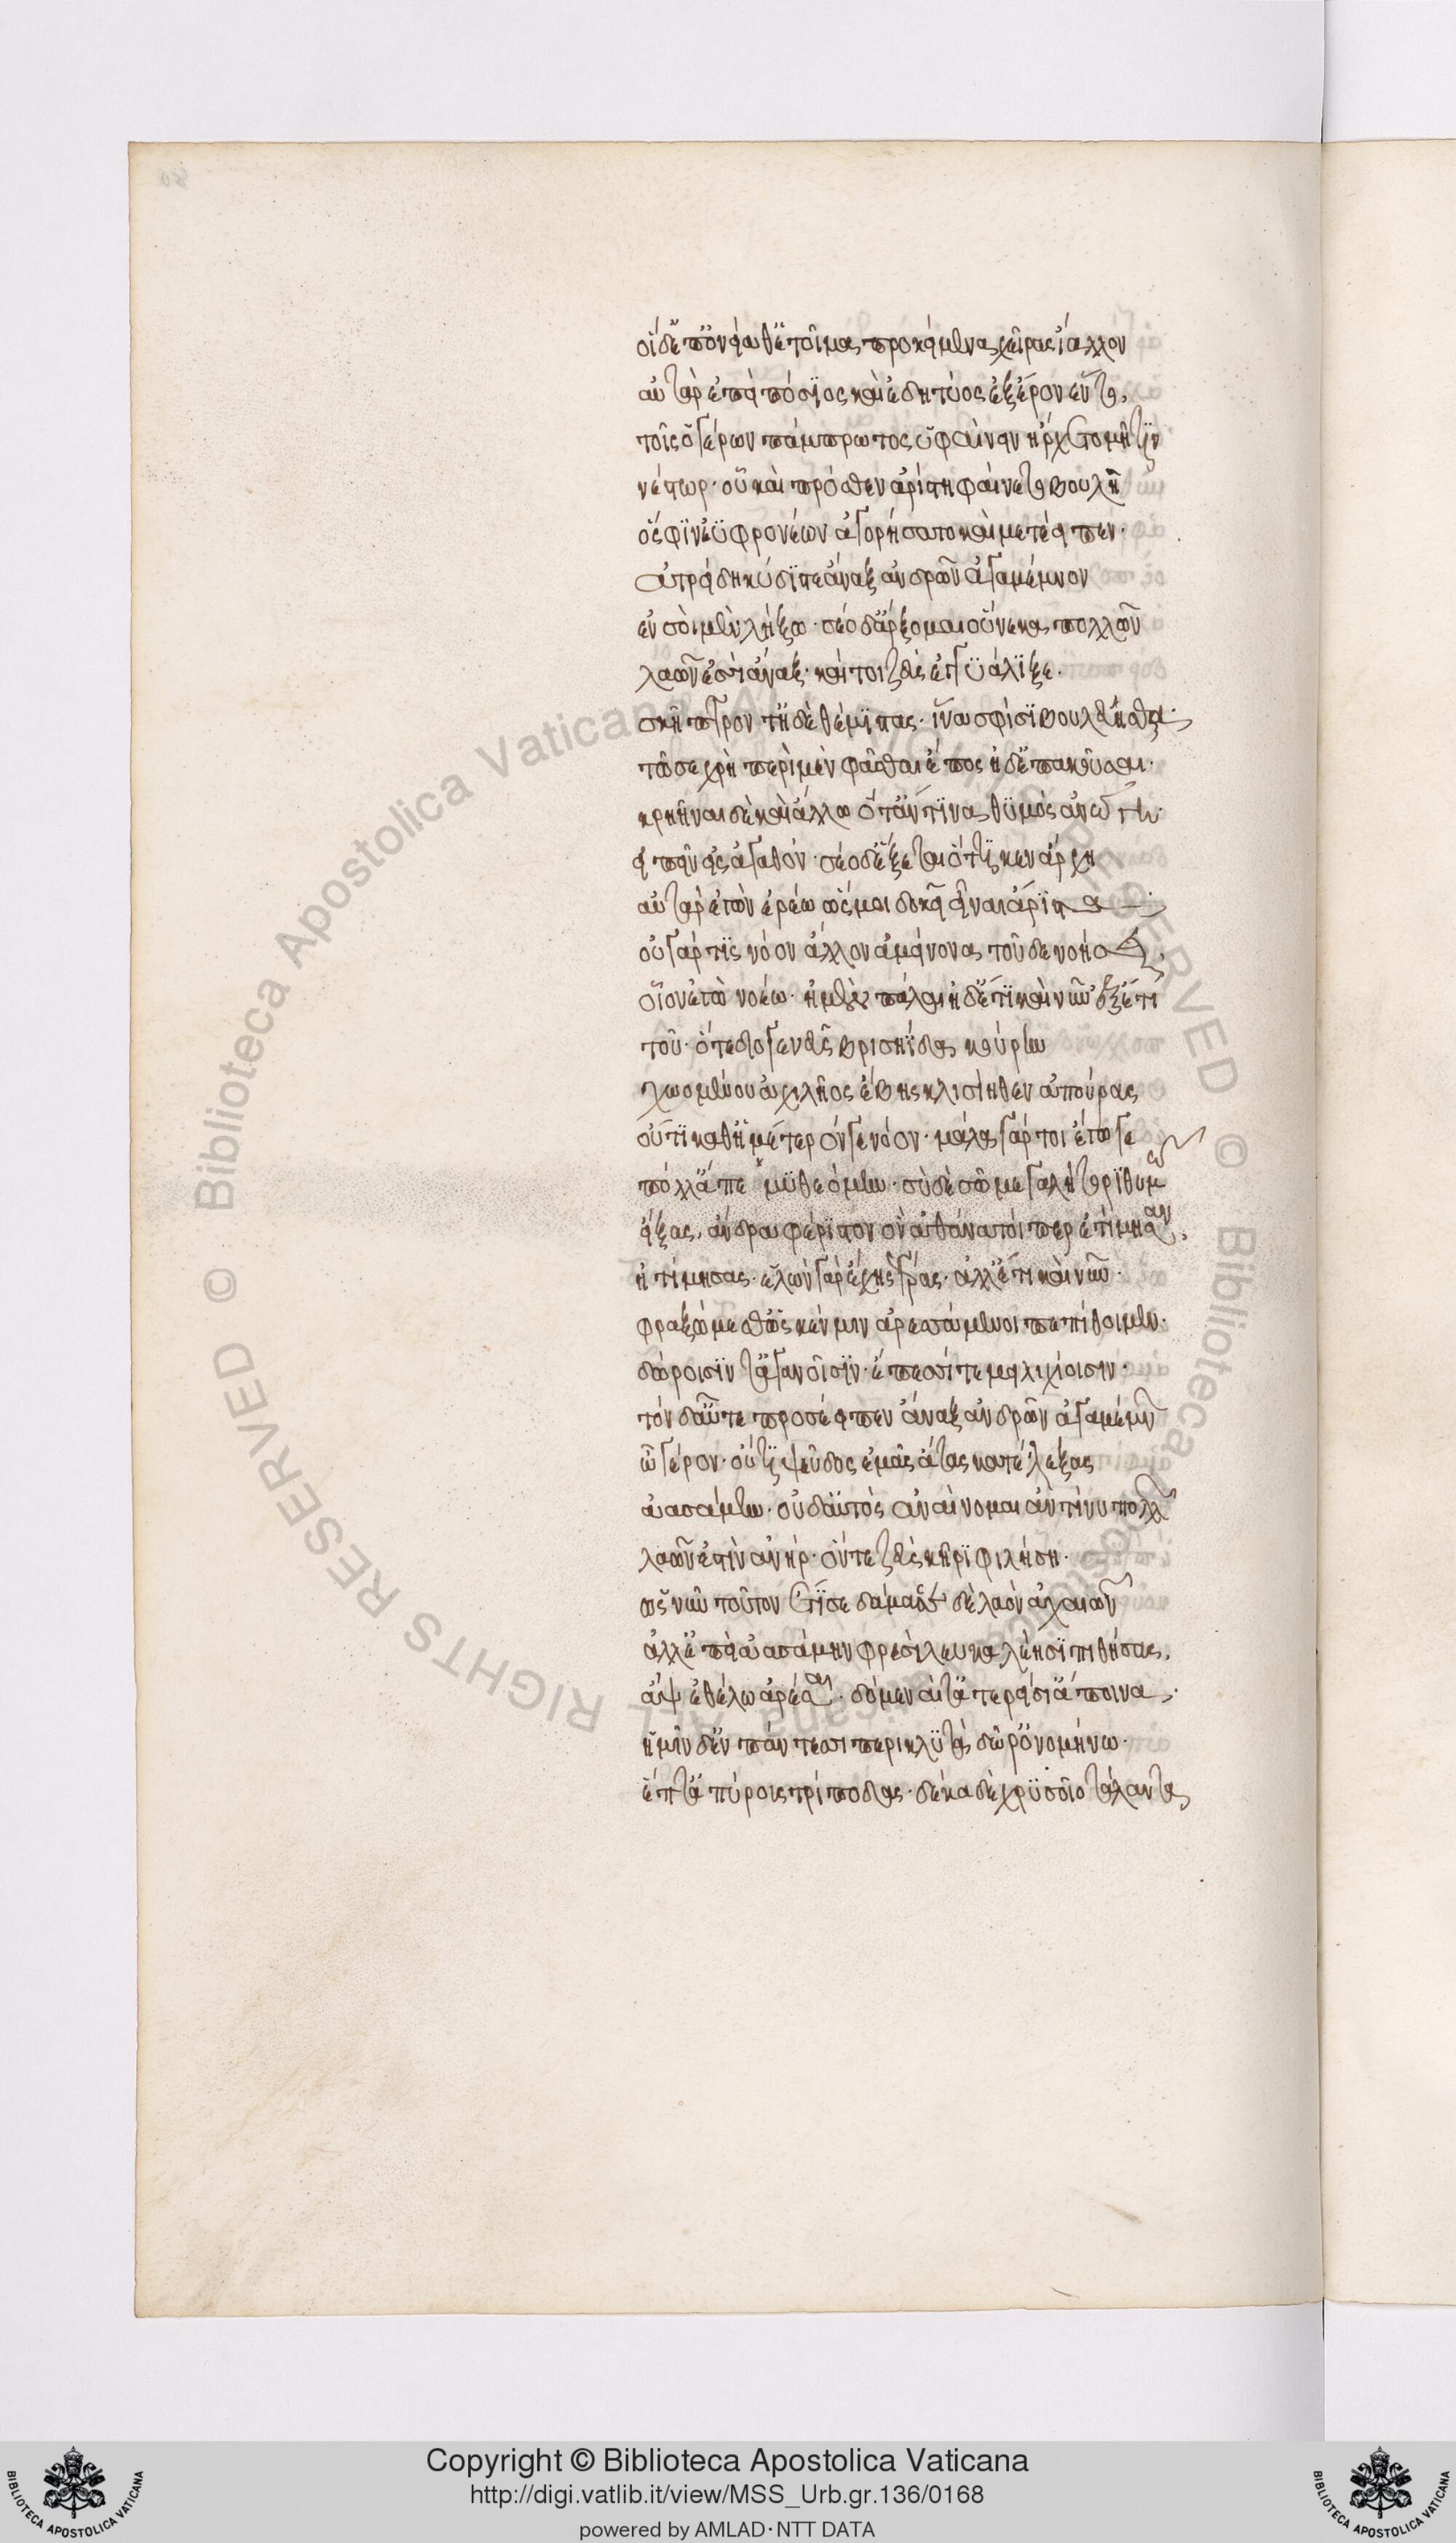 οἱ δ' ἐπ' ὀνείαθ' ἑτοῖμα προκείμενα χεῖρας ἴαλλον
αὐτὰρ ἐπεὶ πόσιος καὶ ἐδητύος ἐξ ἔρον ἕντο,
τοῖς ὁ γέρων πάμπρωτος ὑφαίνειν ἤρχετο μῆτιν
νέστωρ· οὗ καὶ πρόσθεν ἀρίστη φαίνετο βουλή
ὅ σφιν ἐϋφρονέων ἀγορήσατο καὶ μετέειπεν·
ἀτρείδη κύδιστε ἄναξ ἀνδρῶν ἀγάμεμνον
ἐν σοὶ μὲν λήξω· σέο δ' ἄρξομαι οὕνεκα πολλῶν
λαῶν ἐσσὶ ἄναξ· καί τοι ζεὺς ἐγγυάλιξε.
σκῆπτρον τ' ἠδὲ θέμιστας· ἵνα σφίσι βουλεύησθα·
τῶ σε χρὴ περὶ μὲν φᾶσθαι ἔπος ἠδ' ἐπακοῦσαι·
κρηῆναι δὲ καὶ ἄλλω ὅτ' ἄν τινα θυμὸς ἀνώγη·
εἰπεῖν εἰς ἀγαθόν· σέο δ' ἕξεται ὅττι κεν ἄρχη
αὐτὰρ ἐγὼν ἐρέω ὥς μοι δοκεῖ εἶναι ἄριστα·
οὐ γάρ τις νόον ἄλλον ἀμείνονα τοῦδε νοήσει,
οἷον ἐγὼ νοέω· ἠμὲν πάλαι ἠδ' ἔτι καὶ νῦν ἐξέτι
τοῦ· ὅτε διογενεῦς βρισηΐδα κούρην
χωομένου ἀχιλῆος ἔβης κλισίηθεν ἀπούρας
οὔτι καθ' ἡμέτερόν γε νόον· μάλα γάρ τοι ἔγωγε
πόλλ' ἀπεμυθεόμην· σὺ δὲ σῶ μεγαλήτορι θυμῶ
εἴξας, ἄνδρα φέριστον ὃν ἀθάνατοί περ ἔτισαν,
ἠτίμησας· ἑλὼν γὰρ ἔχεις γέρας· ἀλλ' ἔτι καὶ νῦν·
φραζώμεσθ' ὥς κέν μιν ἀρεσσάμενοι πεπίθοιμεν·
δώροισίν τ' ἀγανοῖσιν· ἔπεσσί τε μειλιχίοισιν·
τὸν δ' αὖτε προσέειπεν ἄναξ ἀνδρῶν ἀγαμέμνων
ὦ γέρον· οὔτι ψεῦδος ἐμὰς ἄτας κατέλεξας
ἀασάμην· οὐδ' αὐτὸς ἀναίνομαι ἀντί νυ πολλῶν
λαῶν ἐστὶν ἀνήρ· ὅντε ζεὺς κῆρι φιλήση·
ὡς νῦν τοῦτον ἔτισε δάμασσε δὲ λαὸν ἀχαιῶν
ἀλλ' ἐπεὶ ἀασάμην φρεσὶ λευγαλέησι πιθήσας,
ἂψ ἐθέλω ἀρέσαι· δόμεναί τ' ἀπερείσι' ἄποινα·
ὑμῖν δ' ἐν πάντεσσι περικλυτὰ δῶρ' ὀνομήνω·
ἕπτ' ἀπύρους τρίποδας· δέκα δὲ χρυσοῖο τάλαντα
Copyright © Biblioteca Apostolica Vaticana
http://digi.vatlib.it/view/MSS_Urb.gr.136/0168
powered by AMLAD·NTT DATA